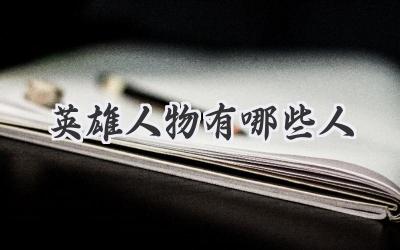 英雄人物有哪些人